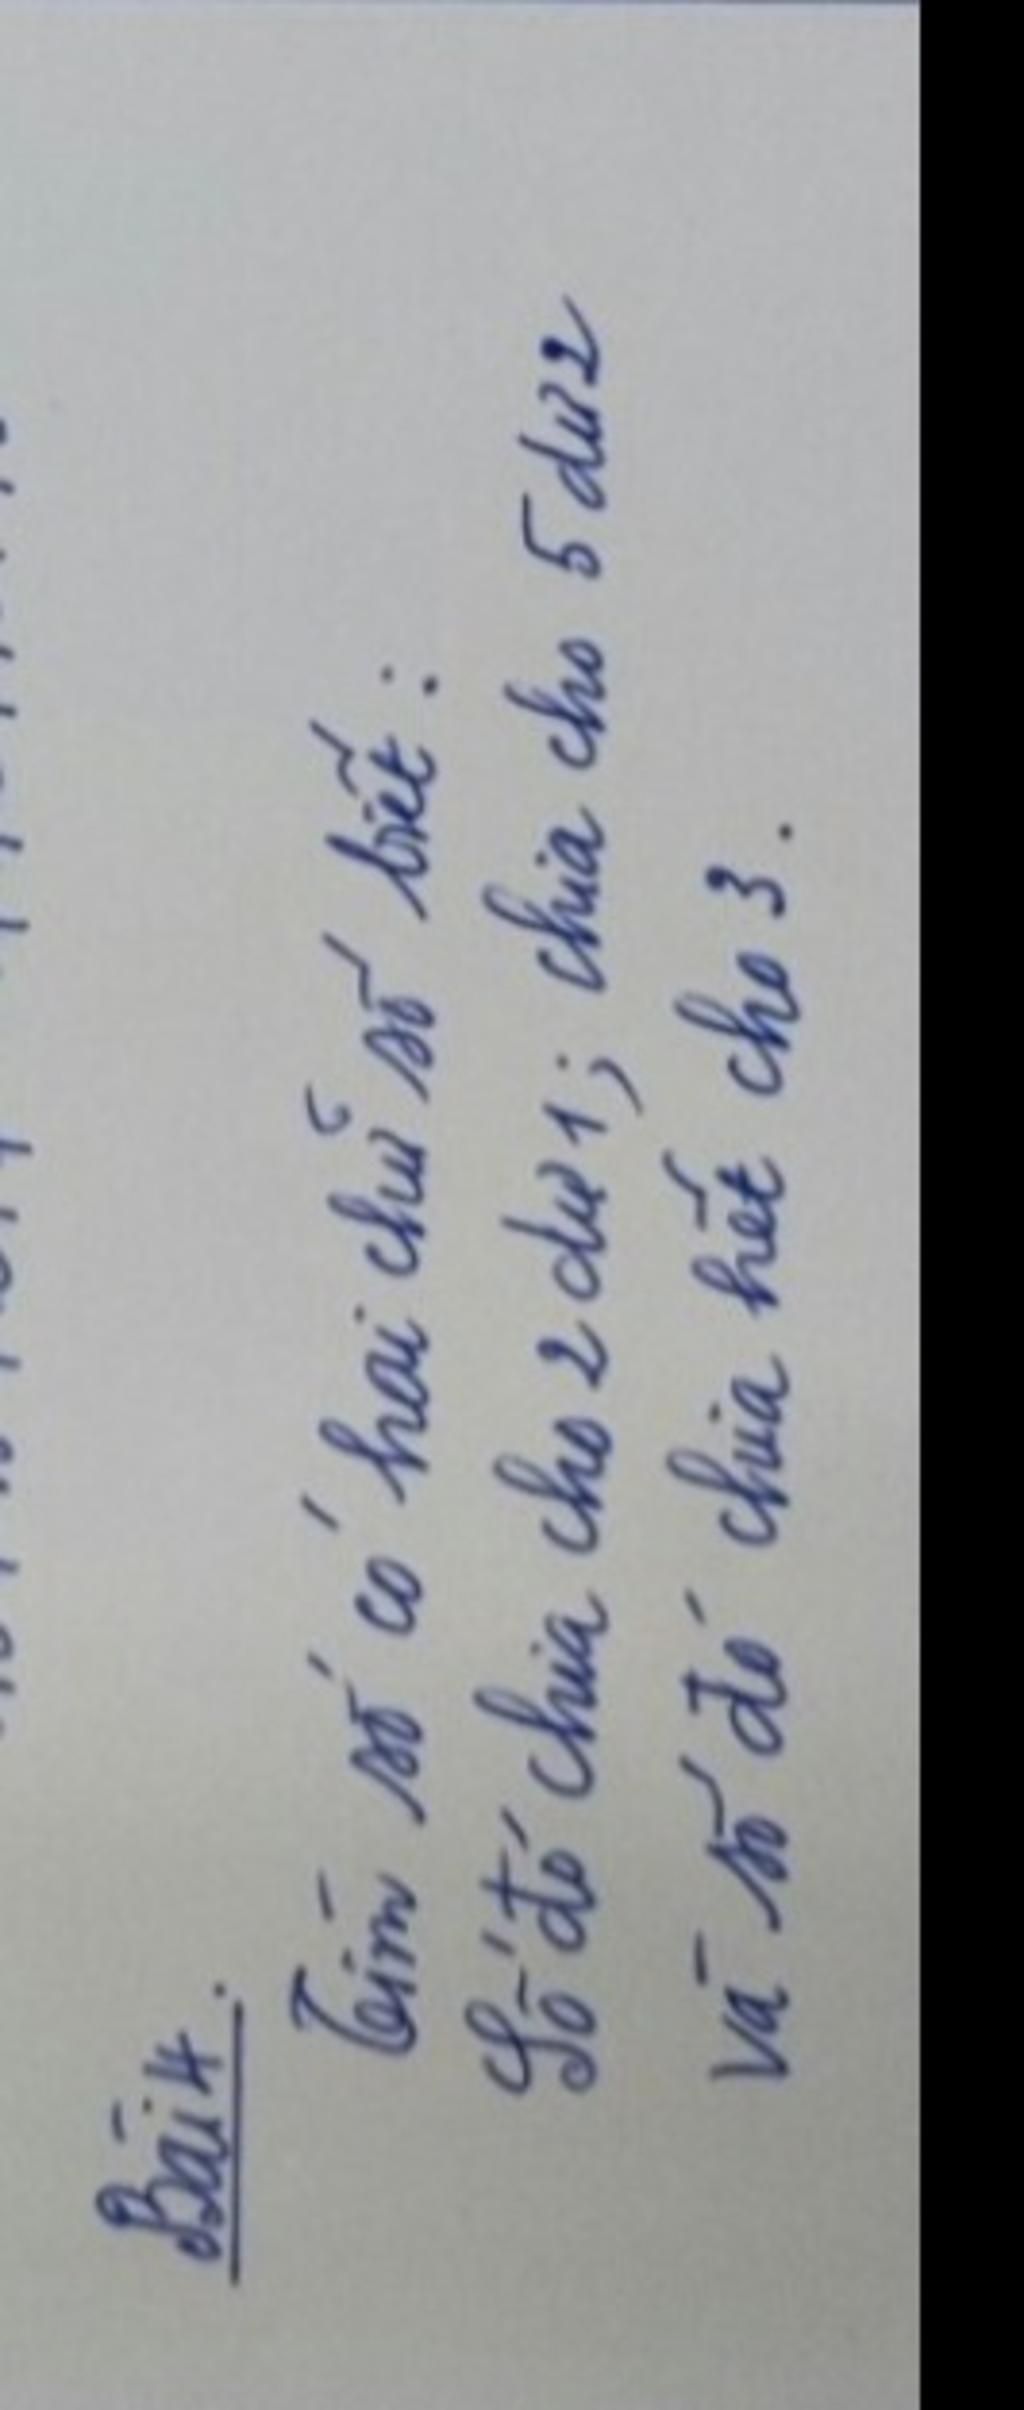 Bài 4.
Tìm số có hai chữ số biết :
Số đó chia cho 2 dư 1 ; chia cho 5 dư 2
và số đó chia hết cho 3 .